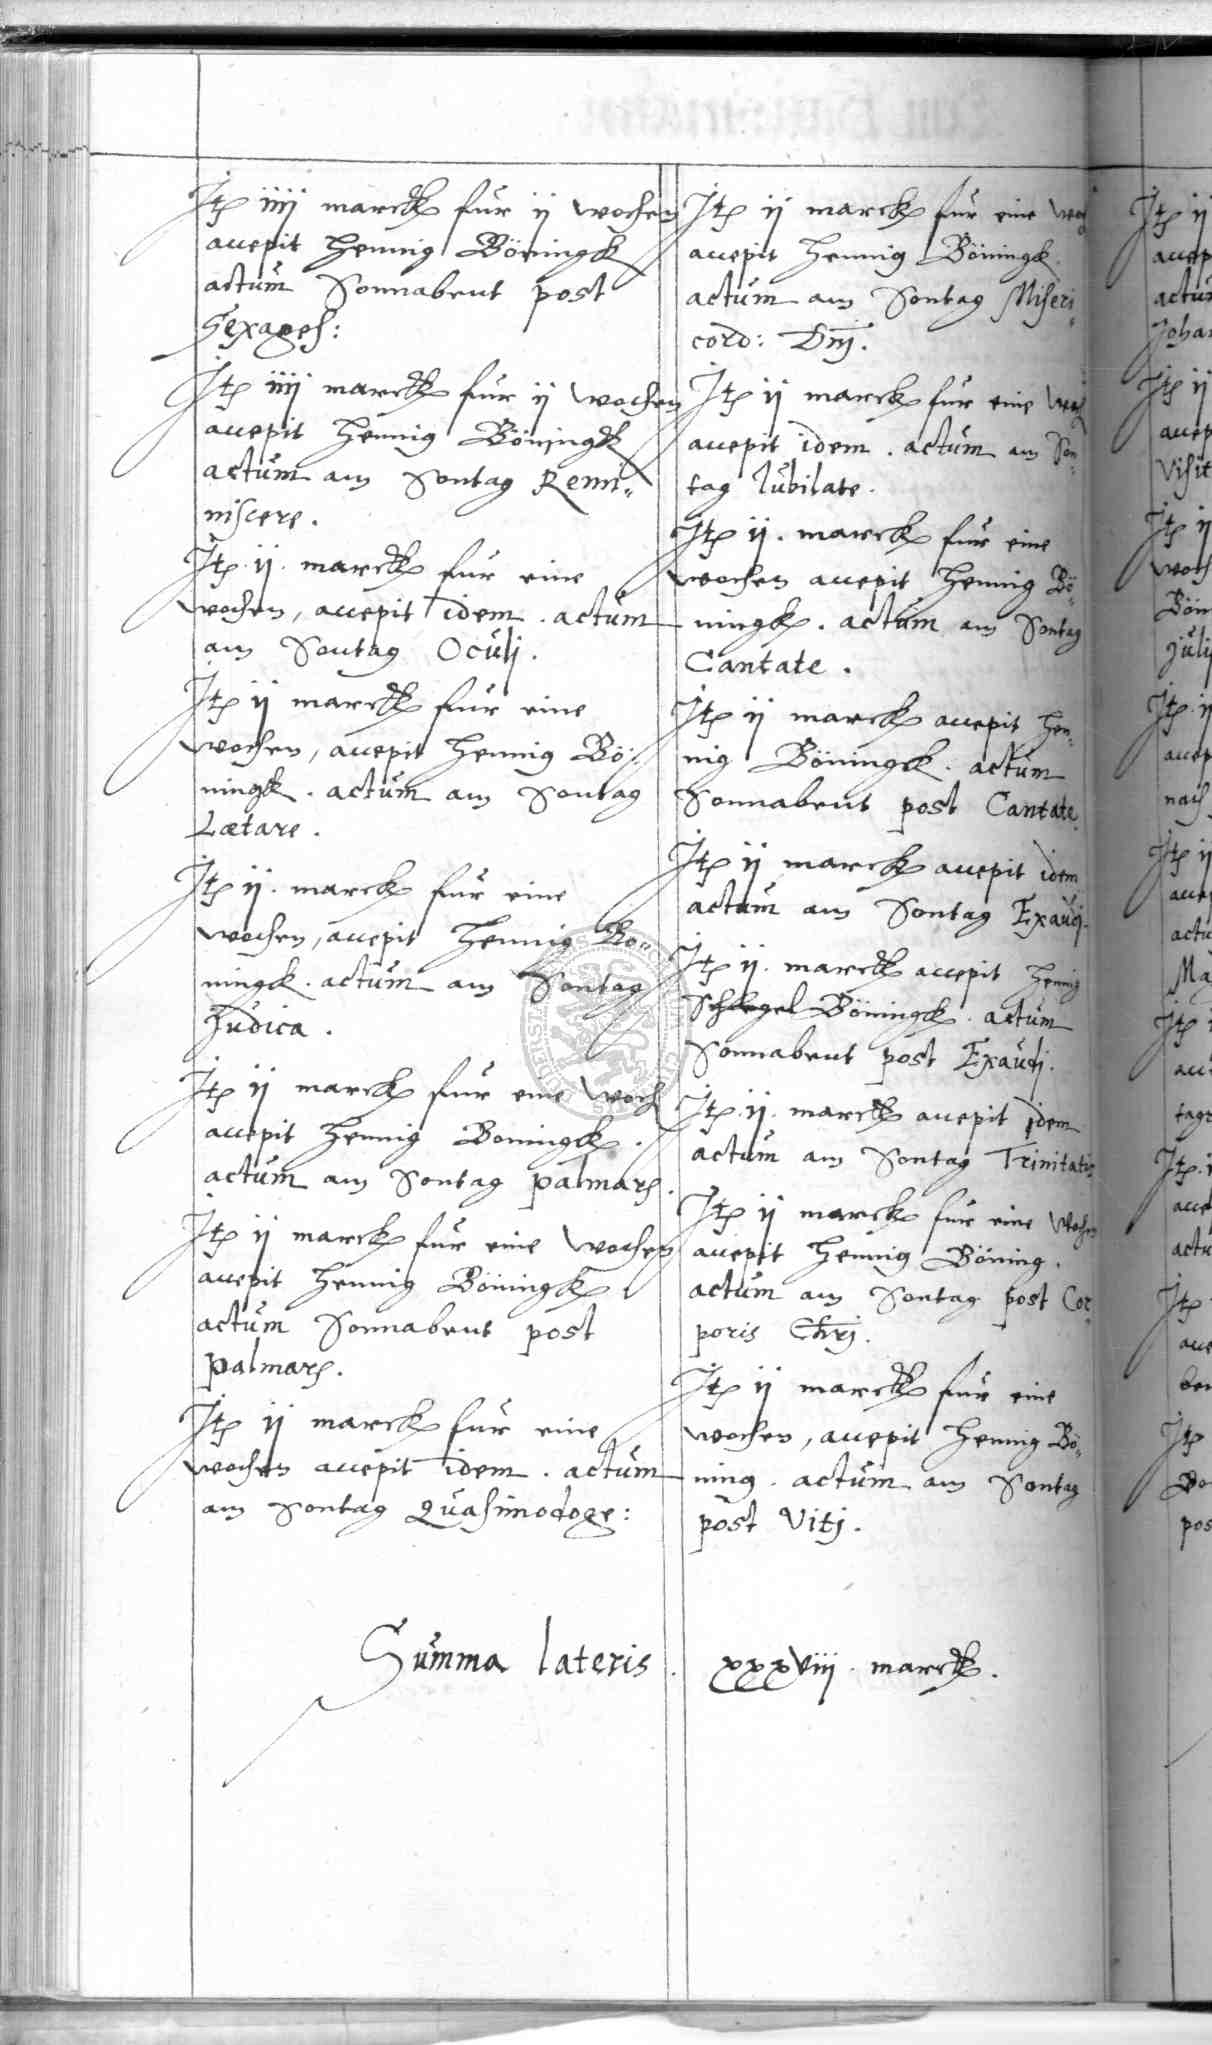 Itē iiij marck fur ij wochen
accepit Hennig Böningk
actum Sonnabent post
Sexages:
Itē iiij marck fur ij wochen
accepit Hennig Böningk
actum am Sontag Remi-
niscere.
Itē .ij. marck fur eine
wochen, accepit idem . actum
am Sontag Oculj.
Itē ij marck fur eine
wochen, accepit Hennig Bö-
ningk . actum am Sontag
Lætare.
Itē ij. marck fur eine
wochen, accepit Hennig Bo-
ningk . actum am Sontag
Judica .
Itē ij marck fur eine woch
accepit Hennig Boningk .
actum am Sontag palmarū.
Itē ij marck fur eine wochen
accepit Hennig Böningk
actum Sonnabent post
palmarū.
Itē ij marck fur eine
wochen accepit idem . actum
am Sontag quasimodoge:
Itē ij marck fur eine woch
accepit Hennig Böningk.
actum am Sontag Miseri-
cord: Dnj.
Itē ij marck fur eine woch
accepit idem . actum am Son-
tag Iubilate.
Itē ij. marck fur eine
wochen accepit Hennig Bö-
ningk . actum am Sontag
Cantate .
Itē ij marck accepit Hen-
nig Böningk. actum
Sonnabent post Cantate.
Itē ij marck accepit idem
actum am Sontag Exaudj.
Itē ij. marck accepit Hennig
Schlegel Böningk. actum
Sonnabent post Exaudj.
Itē .ij. marck accepit idem
actum am Sontag Trinitatis
Itē ij marck fur eine wochen
accepit Hennig Böning.
actum am Sontag post Cor-
poris Chrj.
Itē ij marck fur eine
wochen, accepit Hennig Bö-
ning . actum am Sontag
post Vitj.
Summa lateris . xxxviij . marck.